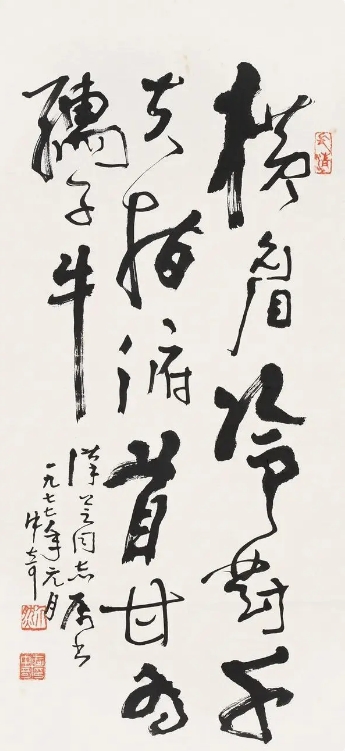 横眉冷對千
夫指俯首甘为
孺子牛
同志属书
一九七七年元月